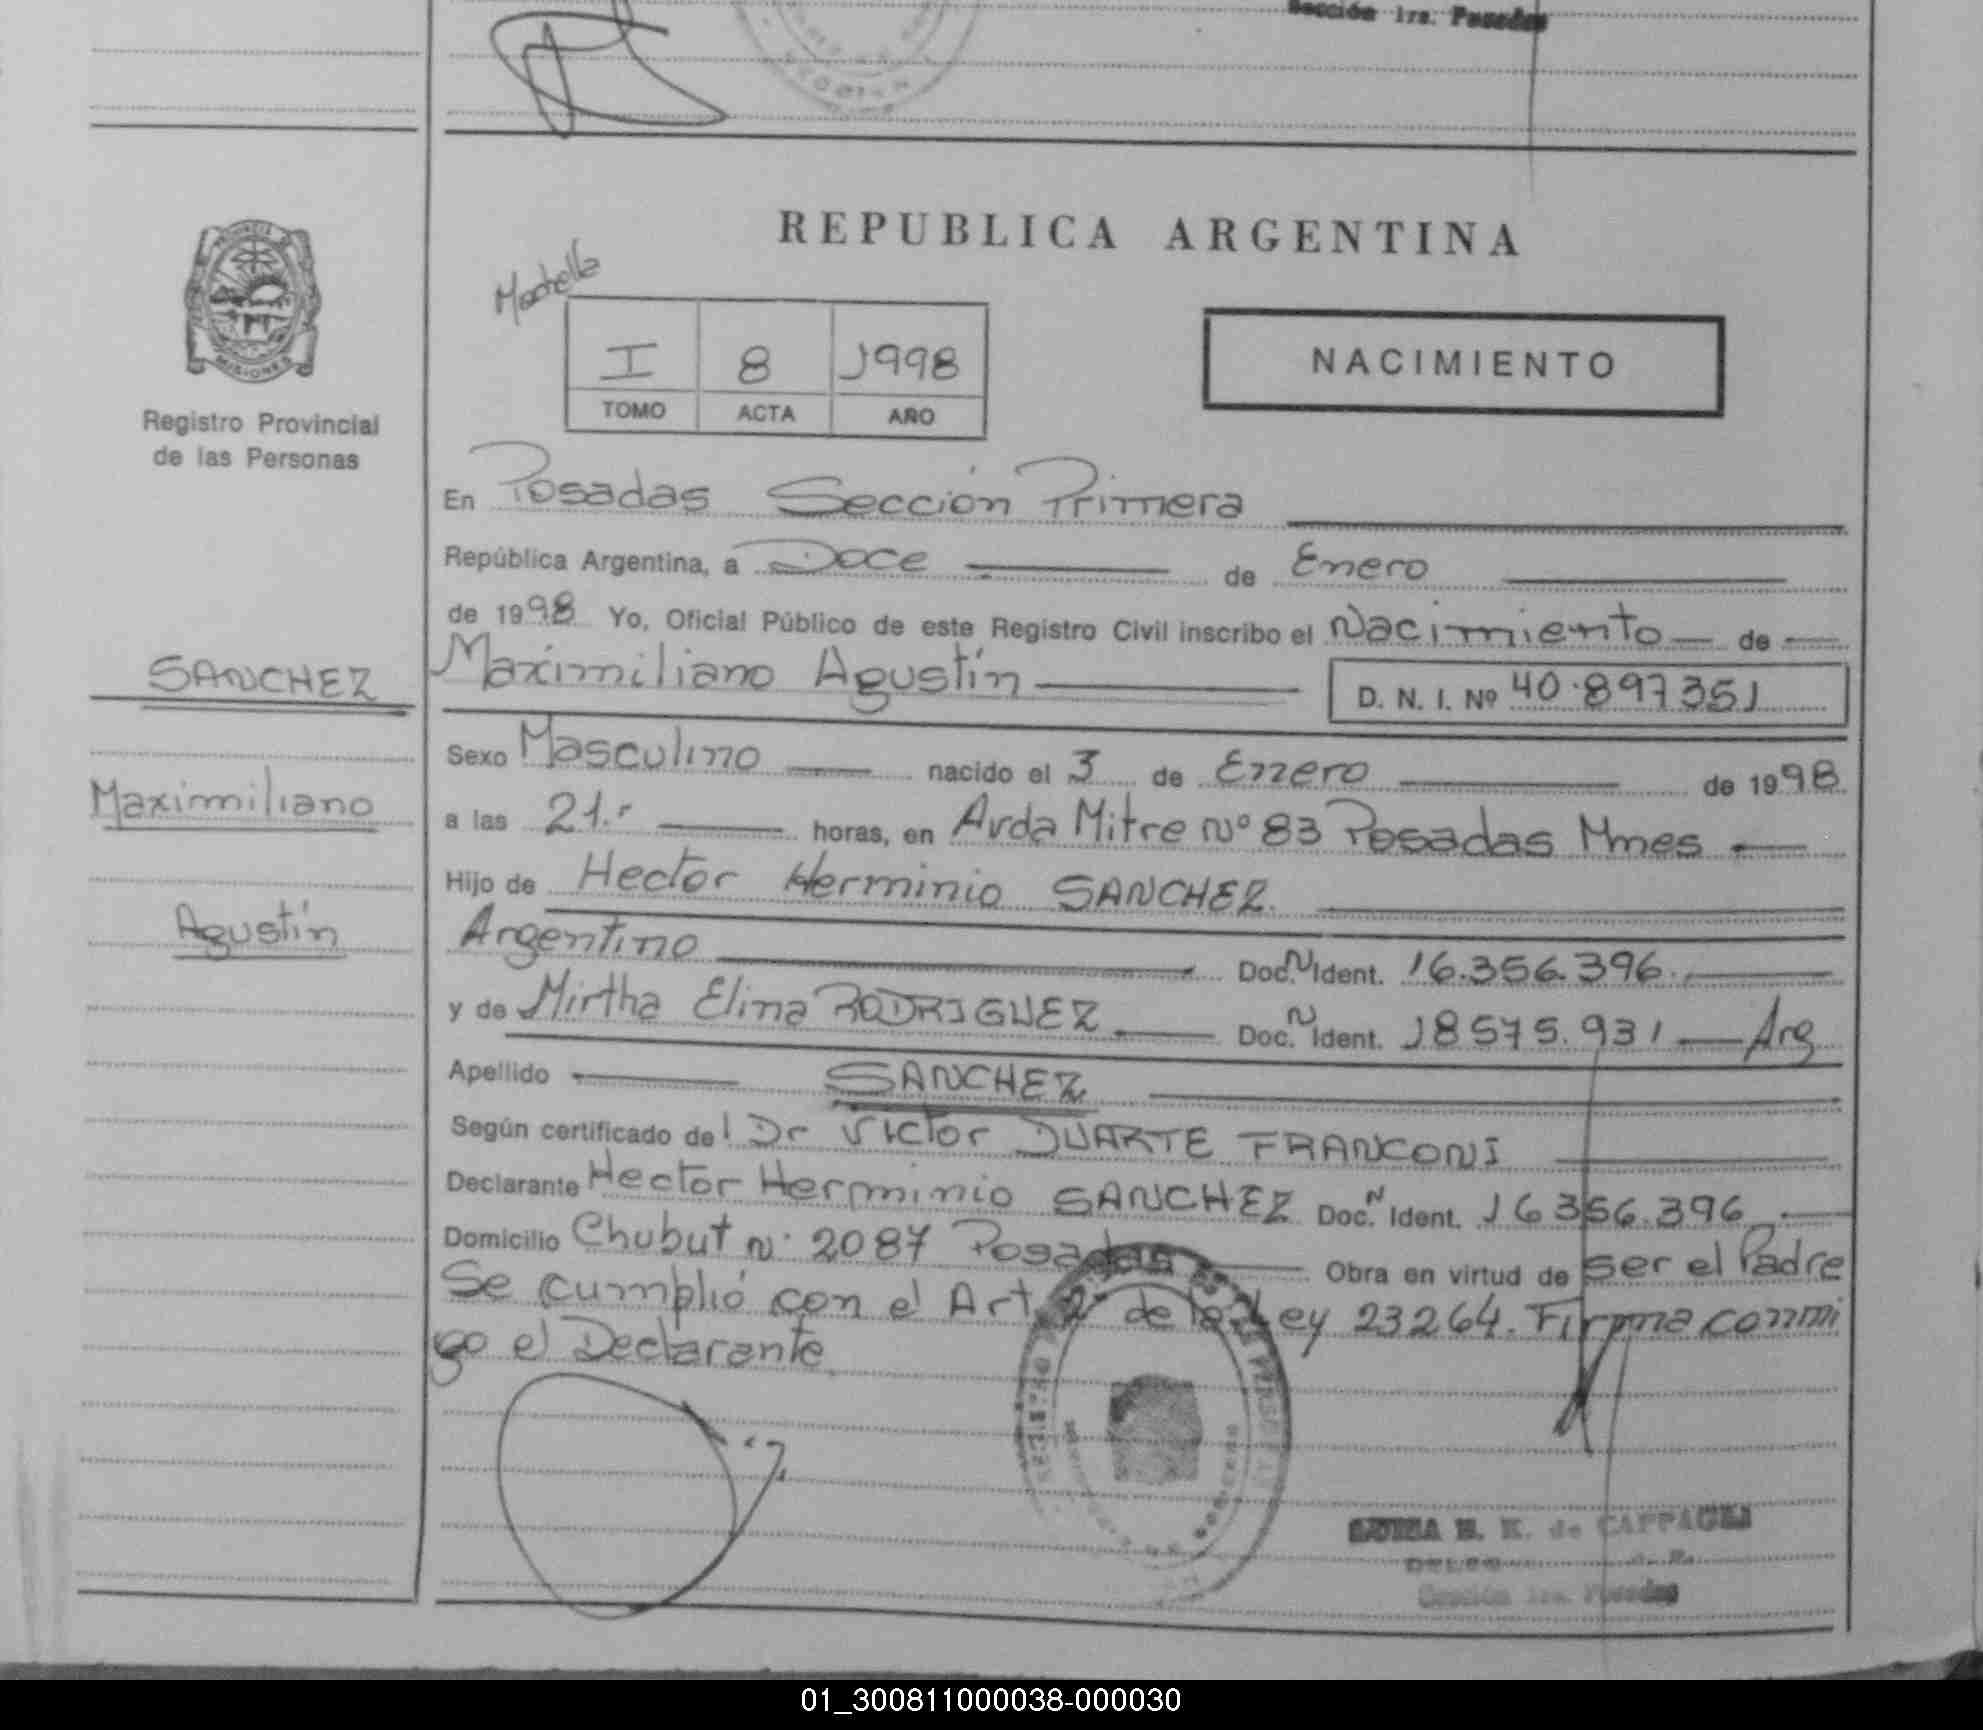 Sección 1ra. Posadas
REPUBLICA ARGENTINA
I 8 1998
TOMO ACTA AÑO
NACIMIENTO
PROVINCIA DE
MISIONES
Registro Provincial
de las Personas
SANCHEZ
Maximiliano
Agustín
En Posadas Sección Primera
República Argentina, a Doce de Enero
de 1998 Yo, Oficial Público de este Registro Civil inscribo el Nacimiento de
Maximiliano Agustín D. N. I. Nº 40.897351
Sexo Masculino nacido el 3 de Enero de 1998
a las 21.- horas, en Avda Mitre Nº 83 Posadas Mnes
Hijo de Hector Herminio SANCHEZ
Argentino Doc. N Ident. 16.356.396
y de Mirtha Elina RODRIGUEZ Doc. N Ident. 18575.931 Arg
Apellido SANCHEZ
Según certificado del Dr Victor DUARTE FRANCONI
Declarante Hector Herminio SANCHEZ Doc. N Ident. 16356.396
Domicilio Chubut N. 2087 Posadas Obra en virtud de ser el Padre
Se cumplió con el Art. 2º de la Ley 23264. Firma conmi
go el Declarante
Sección 1ra. Posadas
01_300811000038-000030